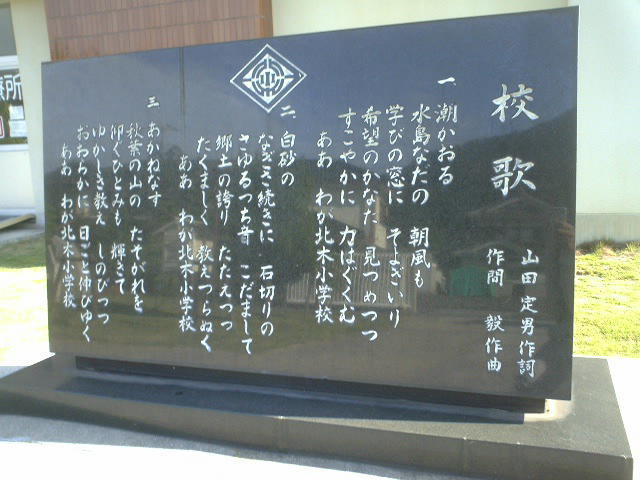 校歌
山田定男作詞
作間毅作曲
一、潮かおる
水島なだの 朝風も
学びの窓に そよぎいり
希望のかなた 見つめつつ
すこやかに 力はぐくむ
ああ わが北木小学校
二、白砂の
なぎさ続きに 石切りの
さゆるつち音 こだまして
郷土の誇り たたえつつ
たくましく 教えつらぬく
ああ わが北木小学校
三、あかねなす
秋葉の山の たそがれを
仰ぐひとみも 輝きて
ゆかしき教え しのびつつ
おおらかに 日ごと伸びゆく
ああ わが北木小学校